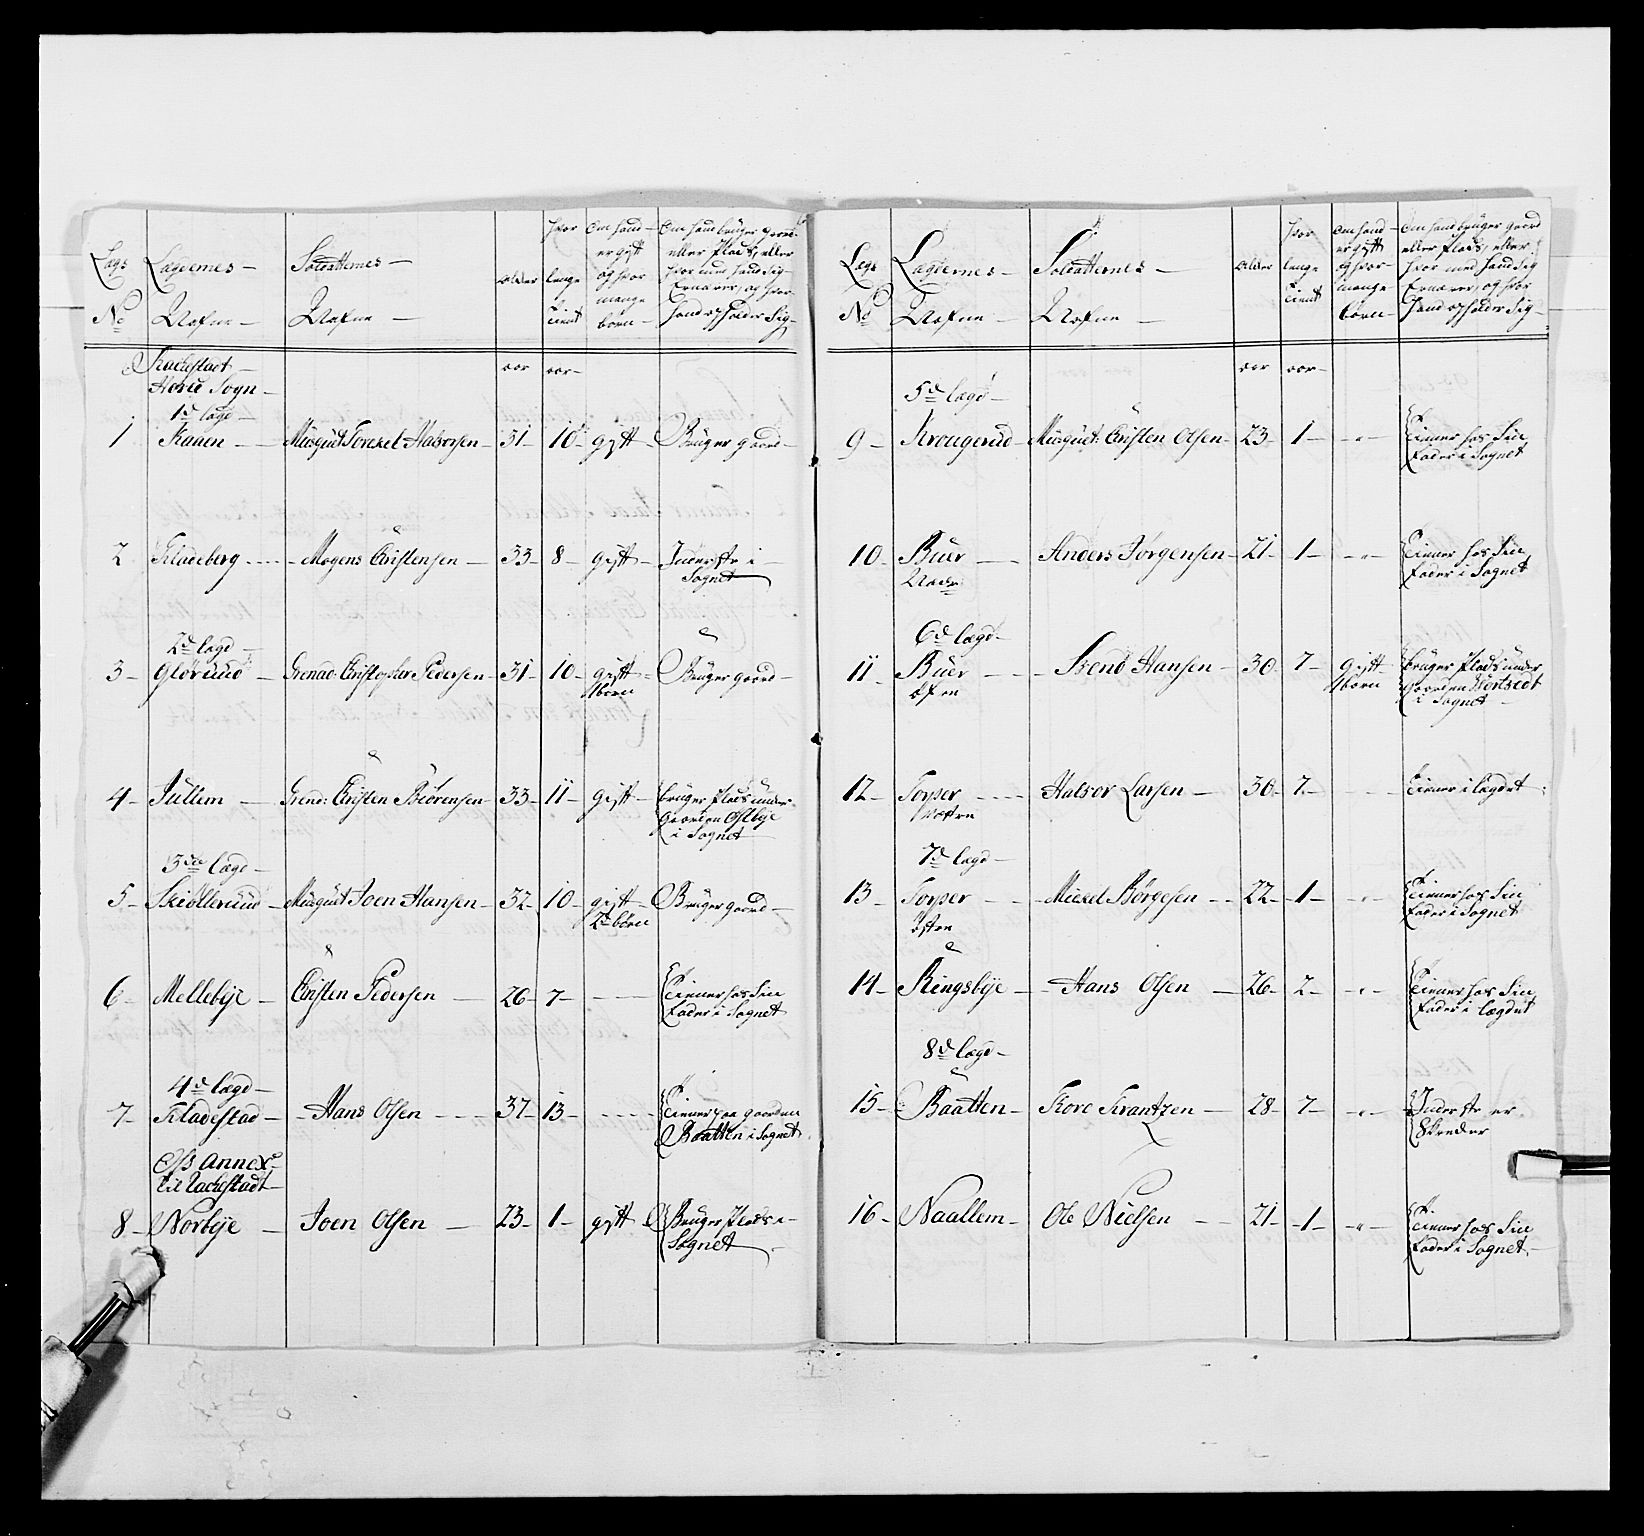 Lægs Lægernes Soldatternes alder hvor lenge tient Om hand er gift og hvor mange børn Om hand bruger gaard eller Plads, eller hvor med hand Sig Ernærer, og hvor hand opholder Sig
No Nafne Nafne
Rackestadt
Hoved Sogn aar aar
1d lægd
1 Kaaen Musquet Torckel Halvorsen 31 10 gift Bruger gaard
2 Kladeberg Mogens Christensen 33 8 gift Inderste i
Sognet
2d lægd
3 Glørud Grenad: Christopher Pedersen 31 10 gift Bruger gaard
1 barn
4 Jullem Grend: Christen Biørensen 33 11 gift bruger Plads under
gaarden Østbye
i Sognet
3die Lægd
5 Skiøllerud Musquet Joen Hansen 32 10 gift Bruger gaard
2 børn
6 Mellebye Christen Pedersen 26 7 tiener hos Sin
fader i Sognet
4d lægd
7 Kladestad Hans Olsen 37 13 tiener paa gaarden
Baatten i Sognet
Øst Annex
til Rackestadt
8 Norbye Joen Olsen 23 1 gift Bruger Plads i
Sognet
Lægs Lægernes Soldatternes alder hvor lenge tient Om hand er gift og hvor mange børn Om hand bruger gaard eller Plads, eller hvor med hand Sig Ernærer, og hvor hand opholder Sig
No Nafne Nafne
aar aar
5d lægd
9 Krougerud Musquet: Christen Olsen 23 1 tiener hos Sin
fader i Sognet
10 Buer Anders Jørgensen 21 1 tiener hos Sin
Nedr fader i Sognet
6d lægd
11 Buer Svend Hansen 30 7 gift bruger Plads under
øfre 1 barn gaarden
i Sognet
12 Torper Halvor Larsen 30 7 tiener i lægdet
Westre
7d lægd
13 Torper Mickel Børgesen 22 1 tiener hos Sin
østre fader i Sognet
14 Ringsbye Hans Olsen 26 2 tiener hos Sin
fader i lægdet
8d lægd
15 Baatten Tore Frantzen 28 7 Inderste er
Skreder
16 Naallem Ole Nielsen 21 1 tiener hos Sin
fader i Sognet